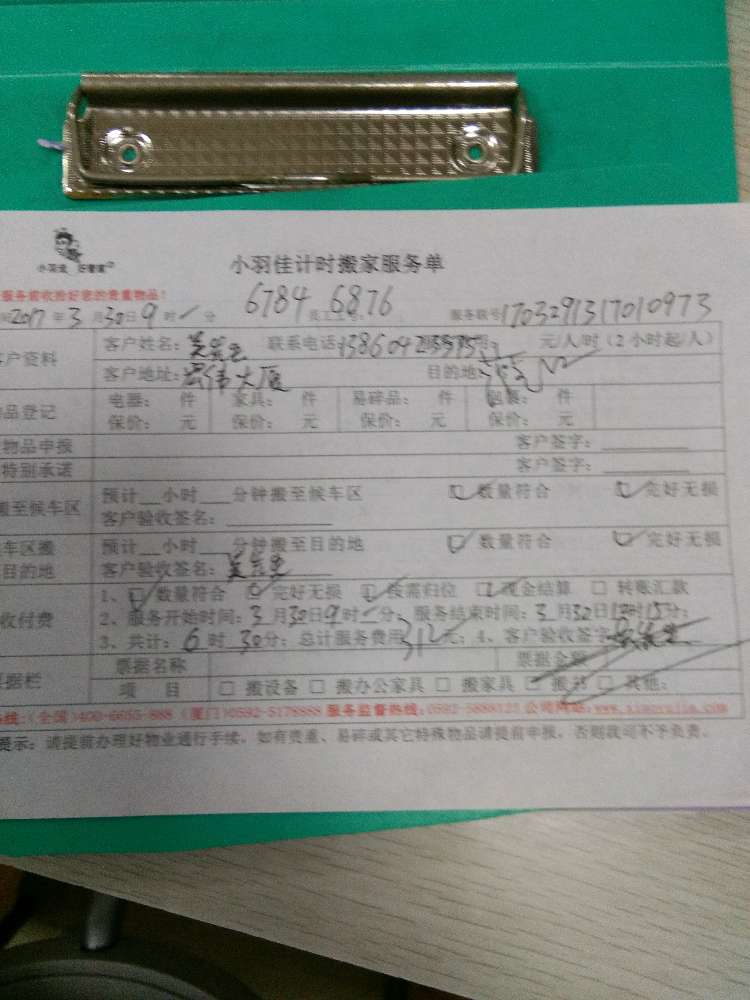 小羽佳 好管家
小羽佳计时搬家服务单
服务前收拾好您的贵重物品!
6784 6876
2017年3月30日9时 分 员工工号: 服务联号1703291317010973
客户资料 客户姓名:吴先生 联系电话 元/人/时(2小时起/人)
客户地址:宏伟大厦 目的地:
品登记 电器: 件 家具: 件 易碎品: 件 包裹: 件
保价: 元 保价: 元 保价: 元 保价: 元
物品申报 客户签字:
特别承诺 客户签字:
搬至候车区 预计 小时 分钟搬至候车区 数量符合 完好无损
客户验收签名:
车区搬 预计 小时 分钟搬至目的地 数量符合 完好无损
目的地 客户验收签名:吴先生
收付费 1、 数量符合 完好无损 按需归位 现金结算 □ 转账汇款
2、服务开始时间:3月30日9时 分;服务结束时间:3月30日 时15分;
3、共计:6时30分;总计服务费用312元;4、客户验收签字:吴先生
票据栏 票据名称 票据金额
项 目 □ 搬设备 □ 搬办公家具 □ 搬家具 搬 □ 其他:
热线:(全国)400-6655-888 (厦门)0592-5178888 服务监督热线:0592-5888123 公司网站:www.xiaoyujia.com
提示:请提前办理好物业通行手续,如有贵重、易碎或其它特殊物品请提前申报,否则我司不予负责。